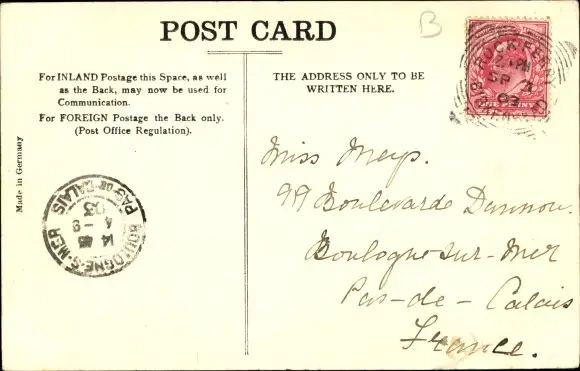 POST CARD
B
For INLAND Postage this Space, as well
as the Back, may now be used for
Communication.
For FOREIGN Postage the Back only.
(Post Office Regulation).
THE ADDRESS ONLY TO BE
WRITTEN HERE.
Made in Germany
ONE PENNY
SP
03
BOULOGNE-S-MER
PAS-DE-CALAIS
14
4 - 9
03
Miss Meys.
99 Boulevarde Daunou.
Boulogne-sur-Mer
Pas-de-Calais
France.